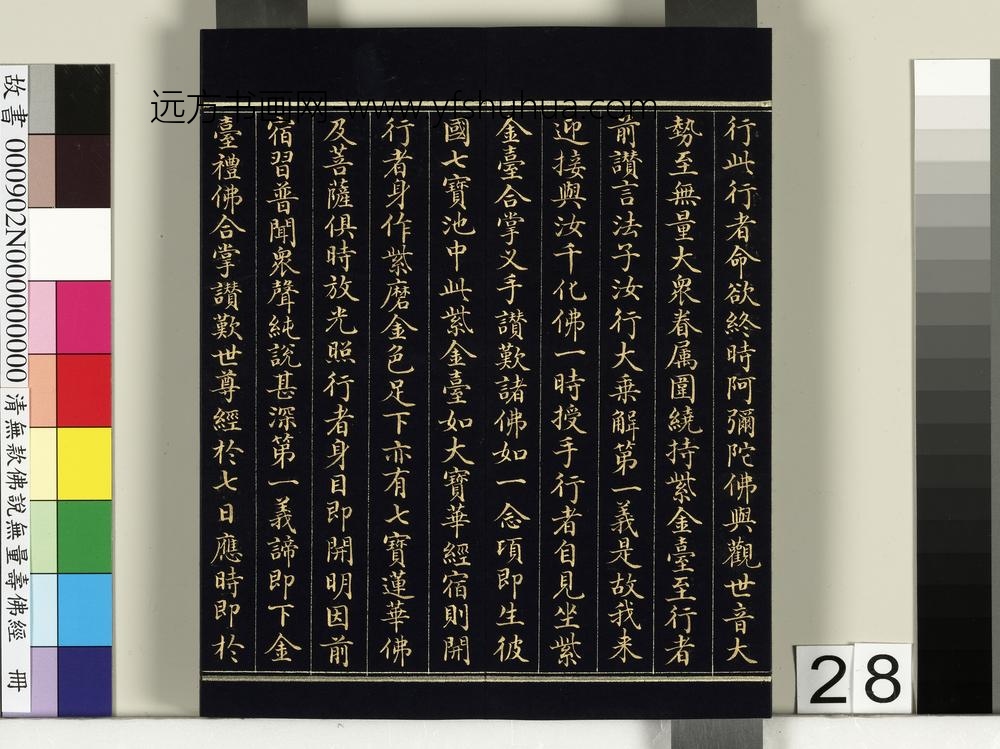 行此行者命欲終時阿彌陀佛與觀世音大
勢至無量大衆眷属圍繞持紫金臺至行者
前讃言法子汝行大乗解第一義是故我来
迎接與汝千化佛一時授手行者自見坐紫
金臺合掌义手讃歎諸佛如一念頃即生彼
國七寶池中此紫金臺如大寶華經宿則開
行者身作紫磨金色足下亦有七寶蓮華佛
及菩薩俱時放光照行者身目即開明因前
宿習普聞衆聲純説甚深第一義諦即下金
臺禮佛合掌讃歎世尊經於七日應時即於
远方书画网 www.yfshuhua.com
故書 000902N000000000
清無款佛說無量壽佛經 冊
28